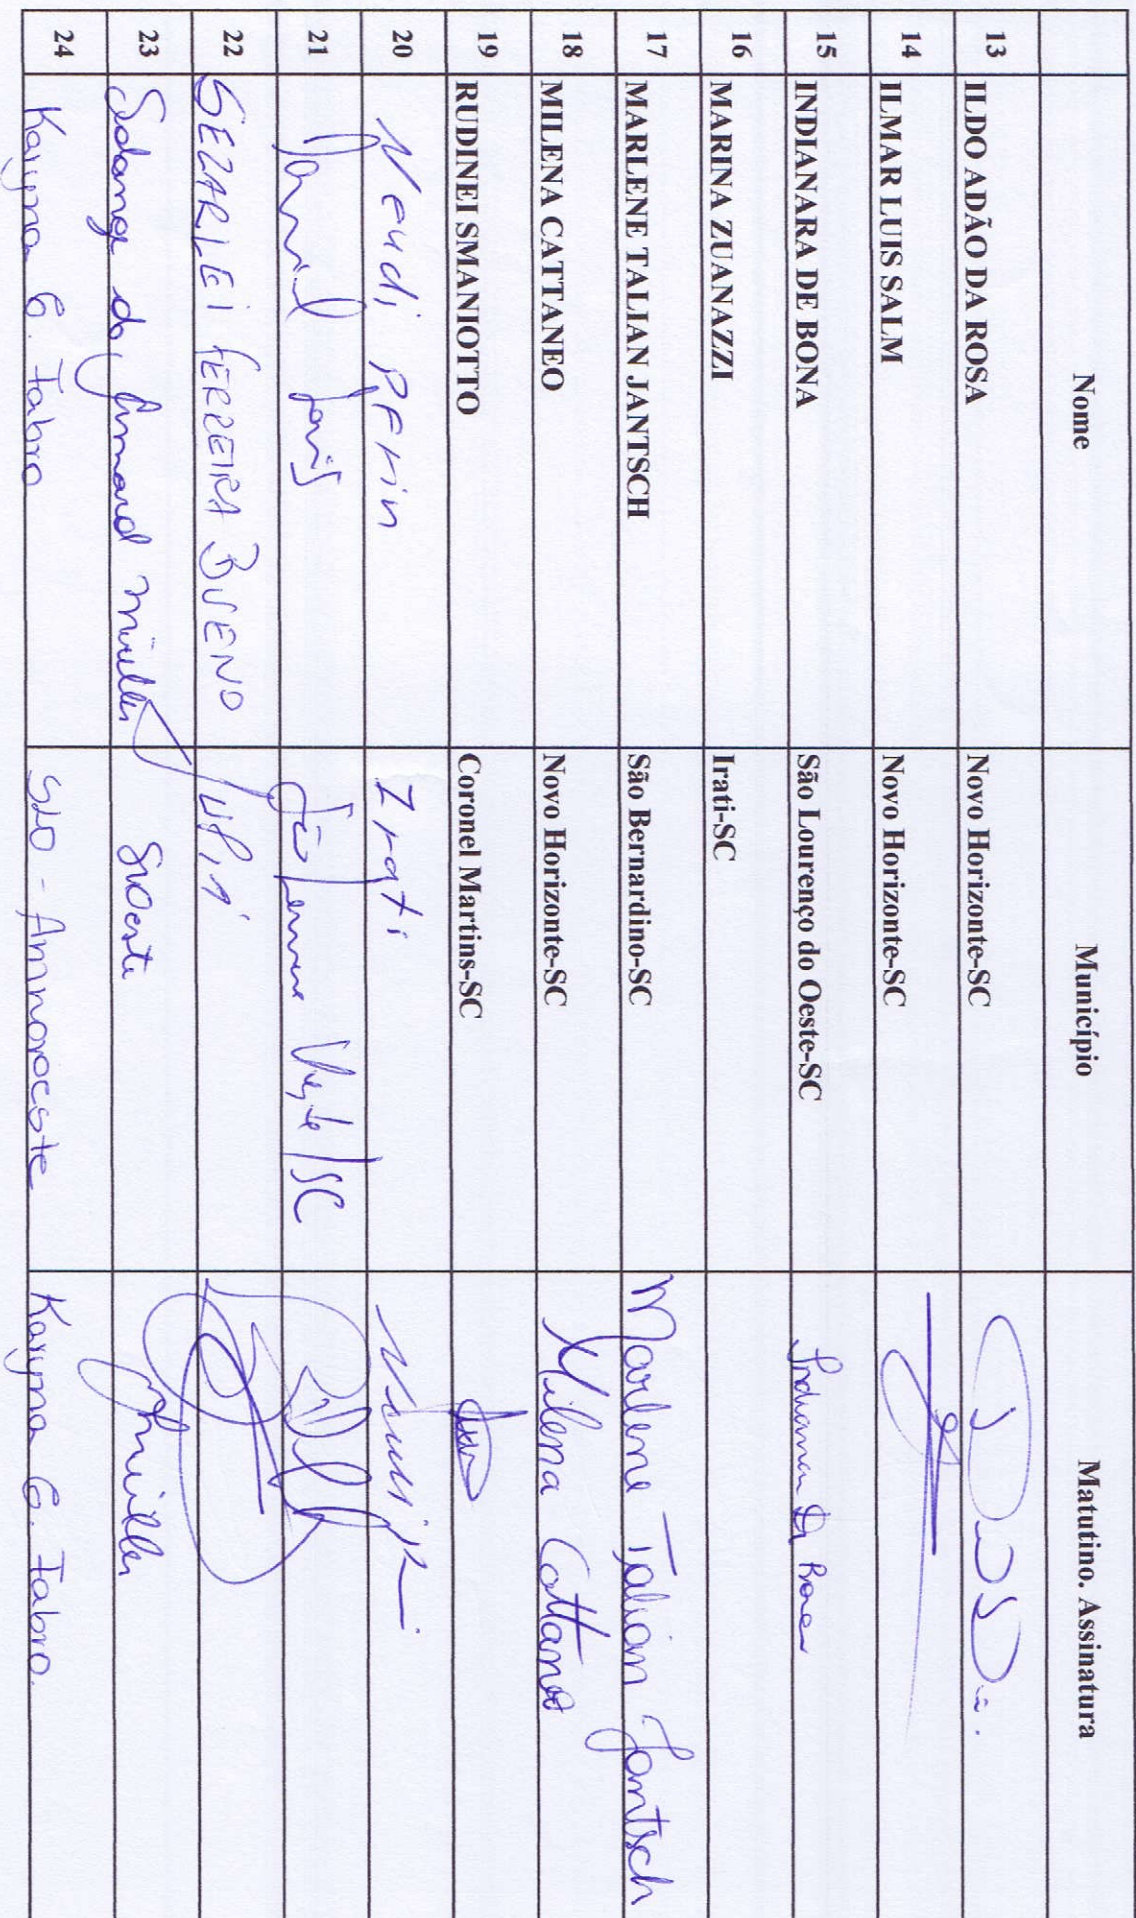 Nome Município Matutino. Assinatura
13 ILDO ADÃO DA ROSA Novo Horizonte-SC
14 ILMAR LUIS SALM Novo Horizonte-SC
15 INDIANARA DE BONA São Lourenço do Oeste-SC Indianara De Bona
16 MARINA ZUANAZZI Irati-SC
17 MARLENE TALIAN JANTSCH São Bernardino-SC Marlene Talian Jantsch
18 MILENA CATTANEO Novo Horizonte-SC Milena Cattaneo
19 RUDINEI SMANIOTTO Coronel Martins-SC
20 Neudi Perin Irati
21
22 SEZARLEI FERREIRA BUENO
23 Solange do SLOeste
24 Karyna G. Tabro SLO - Amnoroeste Karyna G. Tabro.